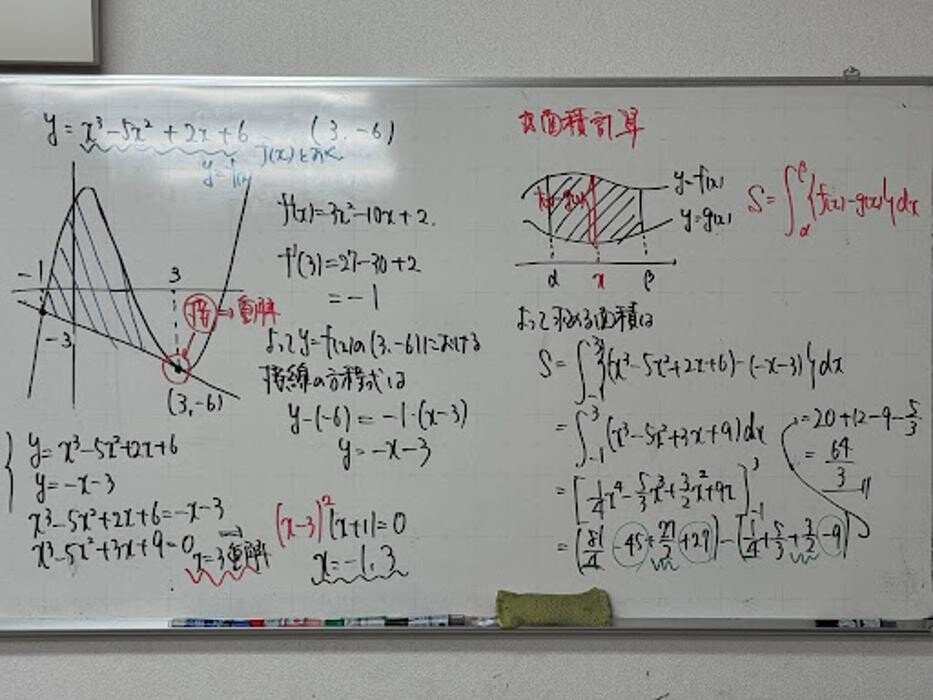 y = x³-5x²+2x+6 (3, -6)
f(x)とおく
y=f(x)
-1
3
-3
接⇒重解
(3,-6)
f'(x)=3x²-10x+2.
f'(3)=27-30+2
=-1
よってy=f(x)の(3,-6)における
接線の方程式は
y-(-6)=-1·(x-3)
y=-x-3
y=x³-5x²+2x+6
y=-x-3
x³-5x²+2x+6=-x-3
x³-5x²+3x+9=0
x=3重解
(x-3)²(x+1)=0
x=-1,3
面積計算
f(x)-g(x)
y=f(x)
y=g(x)
α x β
S=∫_α^β{f(x)-g(x)}dx
よって求める面積は
S=∫_{-1}^{3}{(x³-5x²+2x+6)-(-x-3)}dx
=∫_{-1}^{3}(x³-5x²+3x+9)dx
=[1/4x⁴-5/3x³+3/2x²+9x]_{-1}^{3}
=(81/4-45+27/2+27)-(1/4+5/3+3/2-9)
=20+12-9-5/3
=64/3